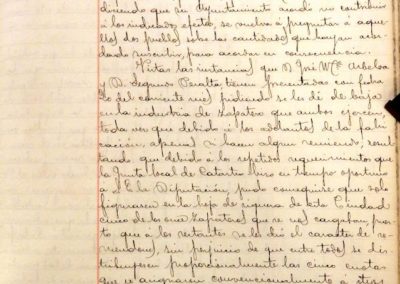 diciendo que su Ayuntamiento acordó no contribuir
á los indicados efectos, se vuelva á preguntar á aque-
llos dos pueblos sobre las cantidades que hayan acor-
dado suscribir, para acordar en consecuencia.
Vistas las instancias que D. José Mª Arbeloa
y D. Segundo Peralta tienen presentadas con fecha
del corriente mes, pidiendo se les dé de baja
en la industria de Zapatero que ambos ejercen,
toda vez que debido á los adelantos de la fabri-
cación, apenas si hacen algun remiendo, resul-
tando que debido á los repetidos requerimientos que
la Junta local de Catastro hizo en tiempo oportuno
á la Diputación, pudo conseguirse que solo
figurasen en la hoja de de esta Ciudad
cinco de los once Zapateros que se nos cargaban, pues-
to que á los restantes se les dió el caracter de re-
mendones, sin perjuicio de que entre todos se dis-
tribuyesen proporcionalmente las cinco cuotas
que se asignaron convencionalmente á estos